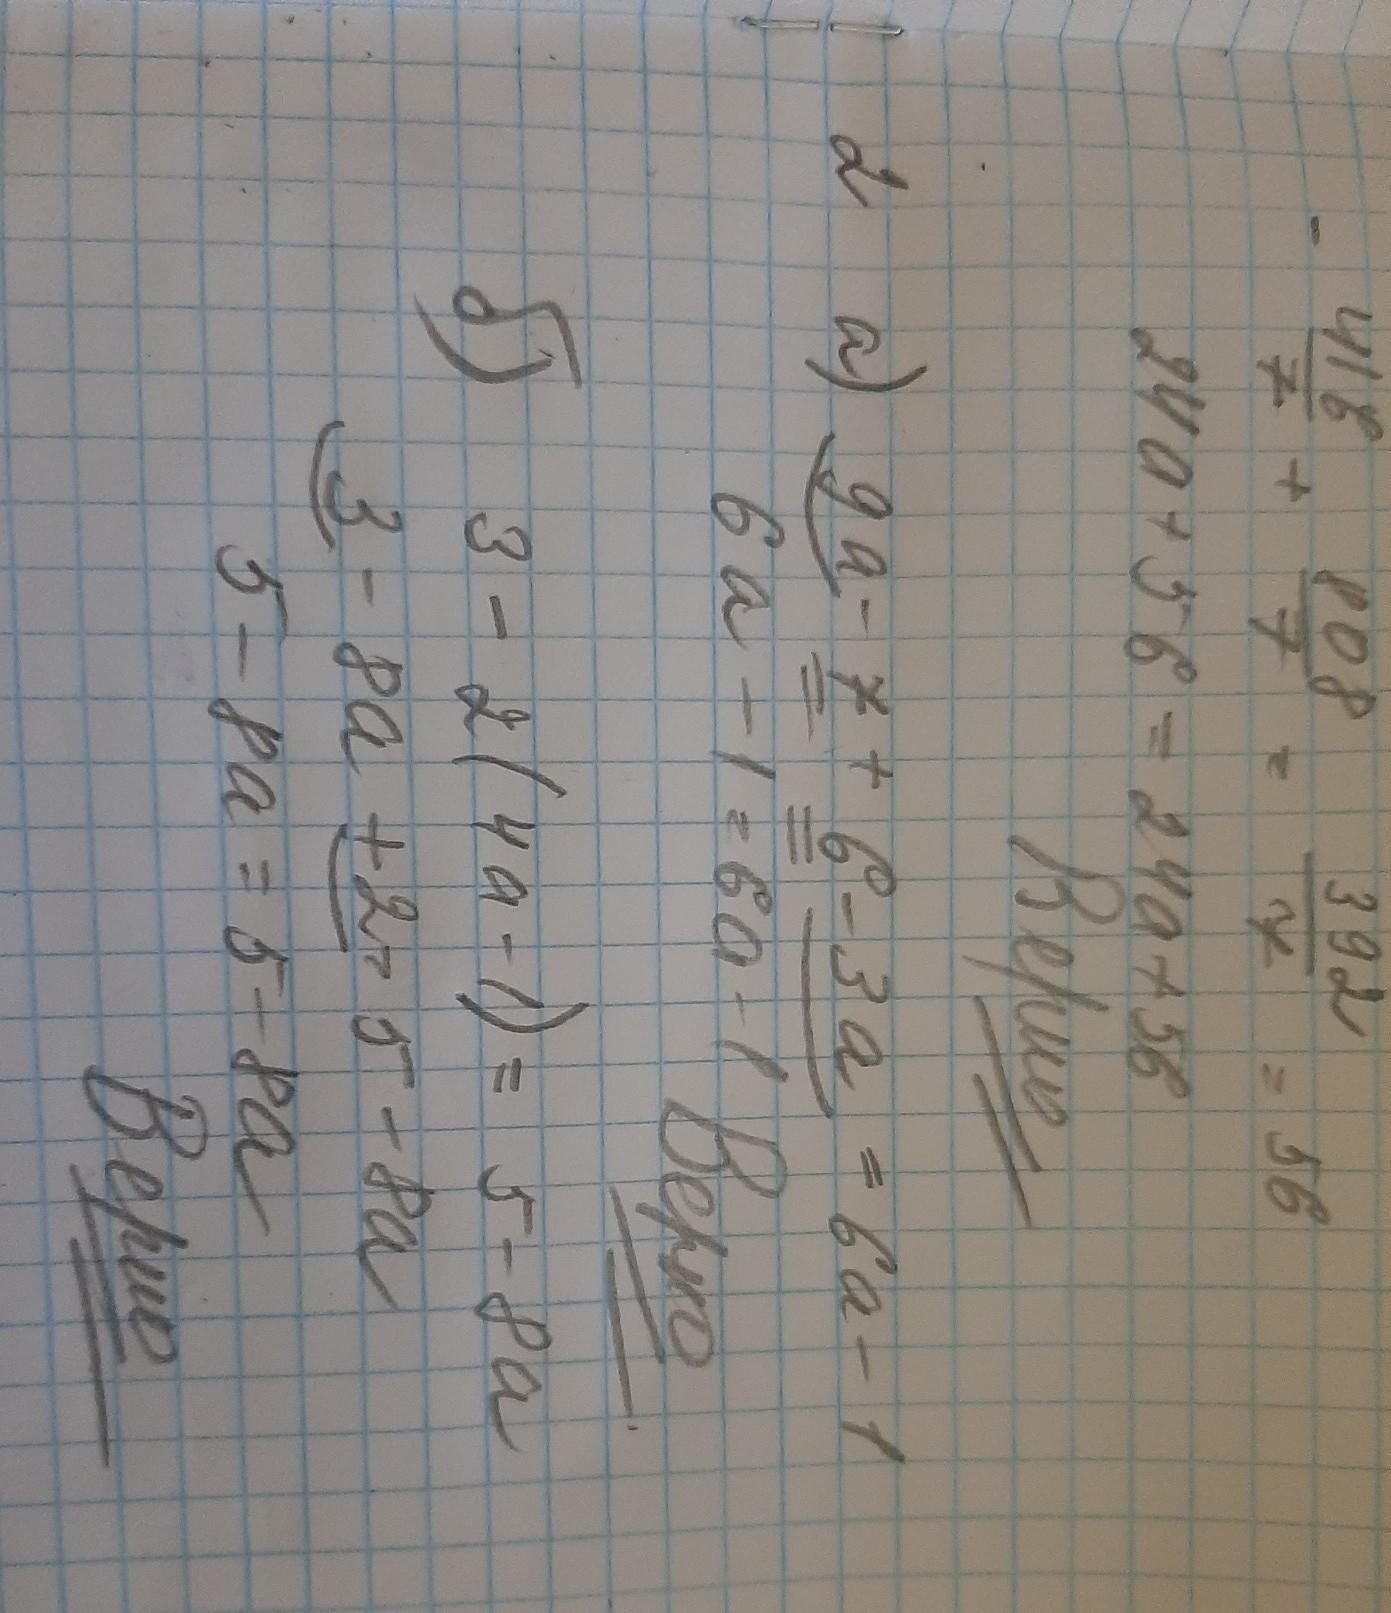 - 416/7 + 808/7 = 392/7 = 56
24a + 56 = 24a + 56
Верно
2 а) 9a - 7 + 6 - 3a = 6a - 1
6a - 1 = 6a - 1 Верно
б) 3 - 2(4a - 1) = 5 - 8a
3 - 8a + 2 = 5 - 8a
5 - 8a = 5 - 8a
Верно